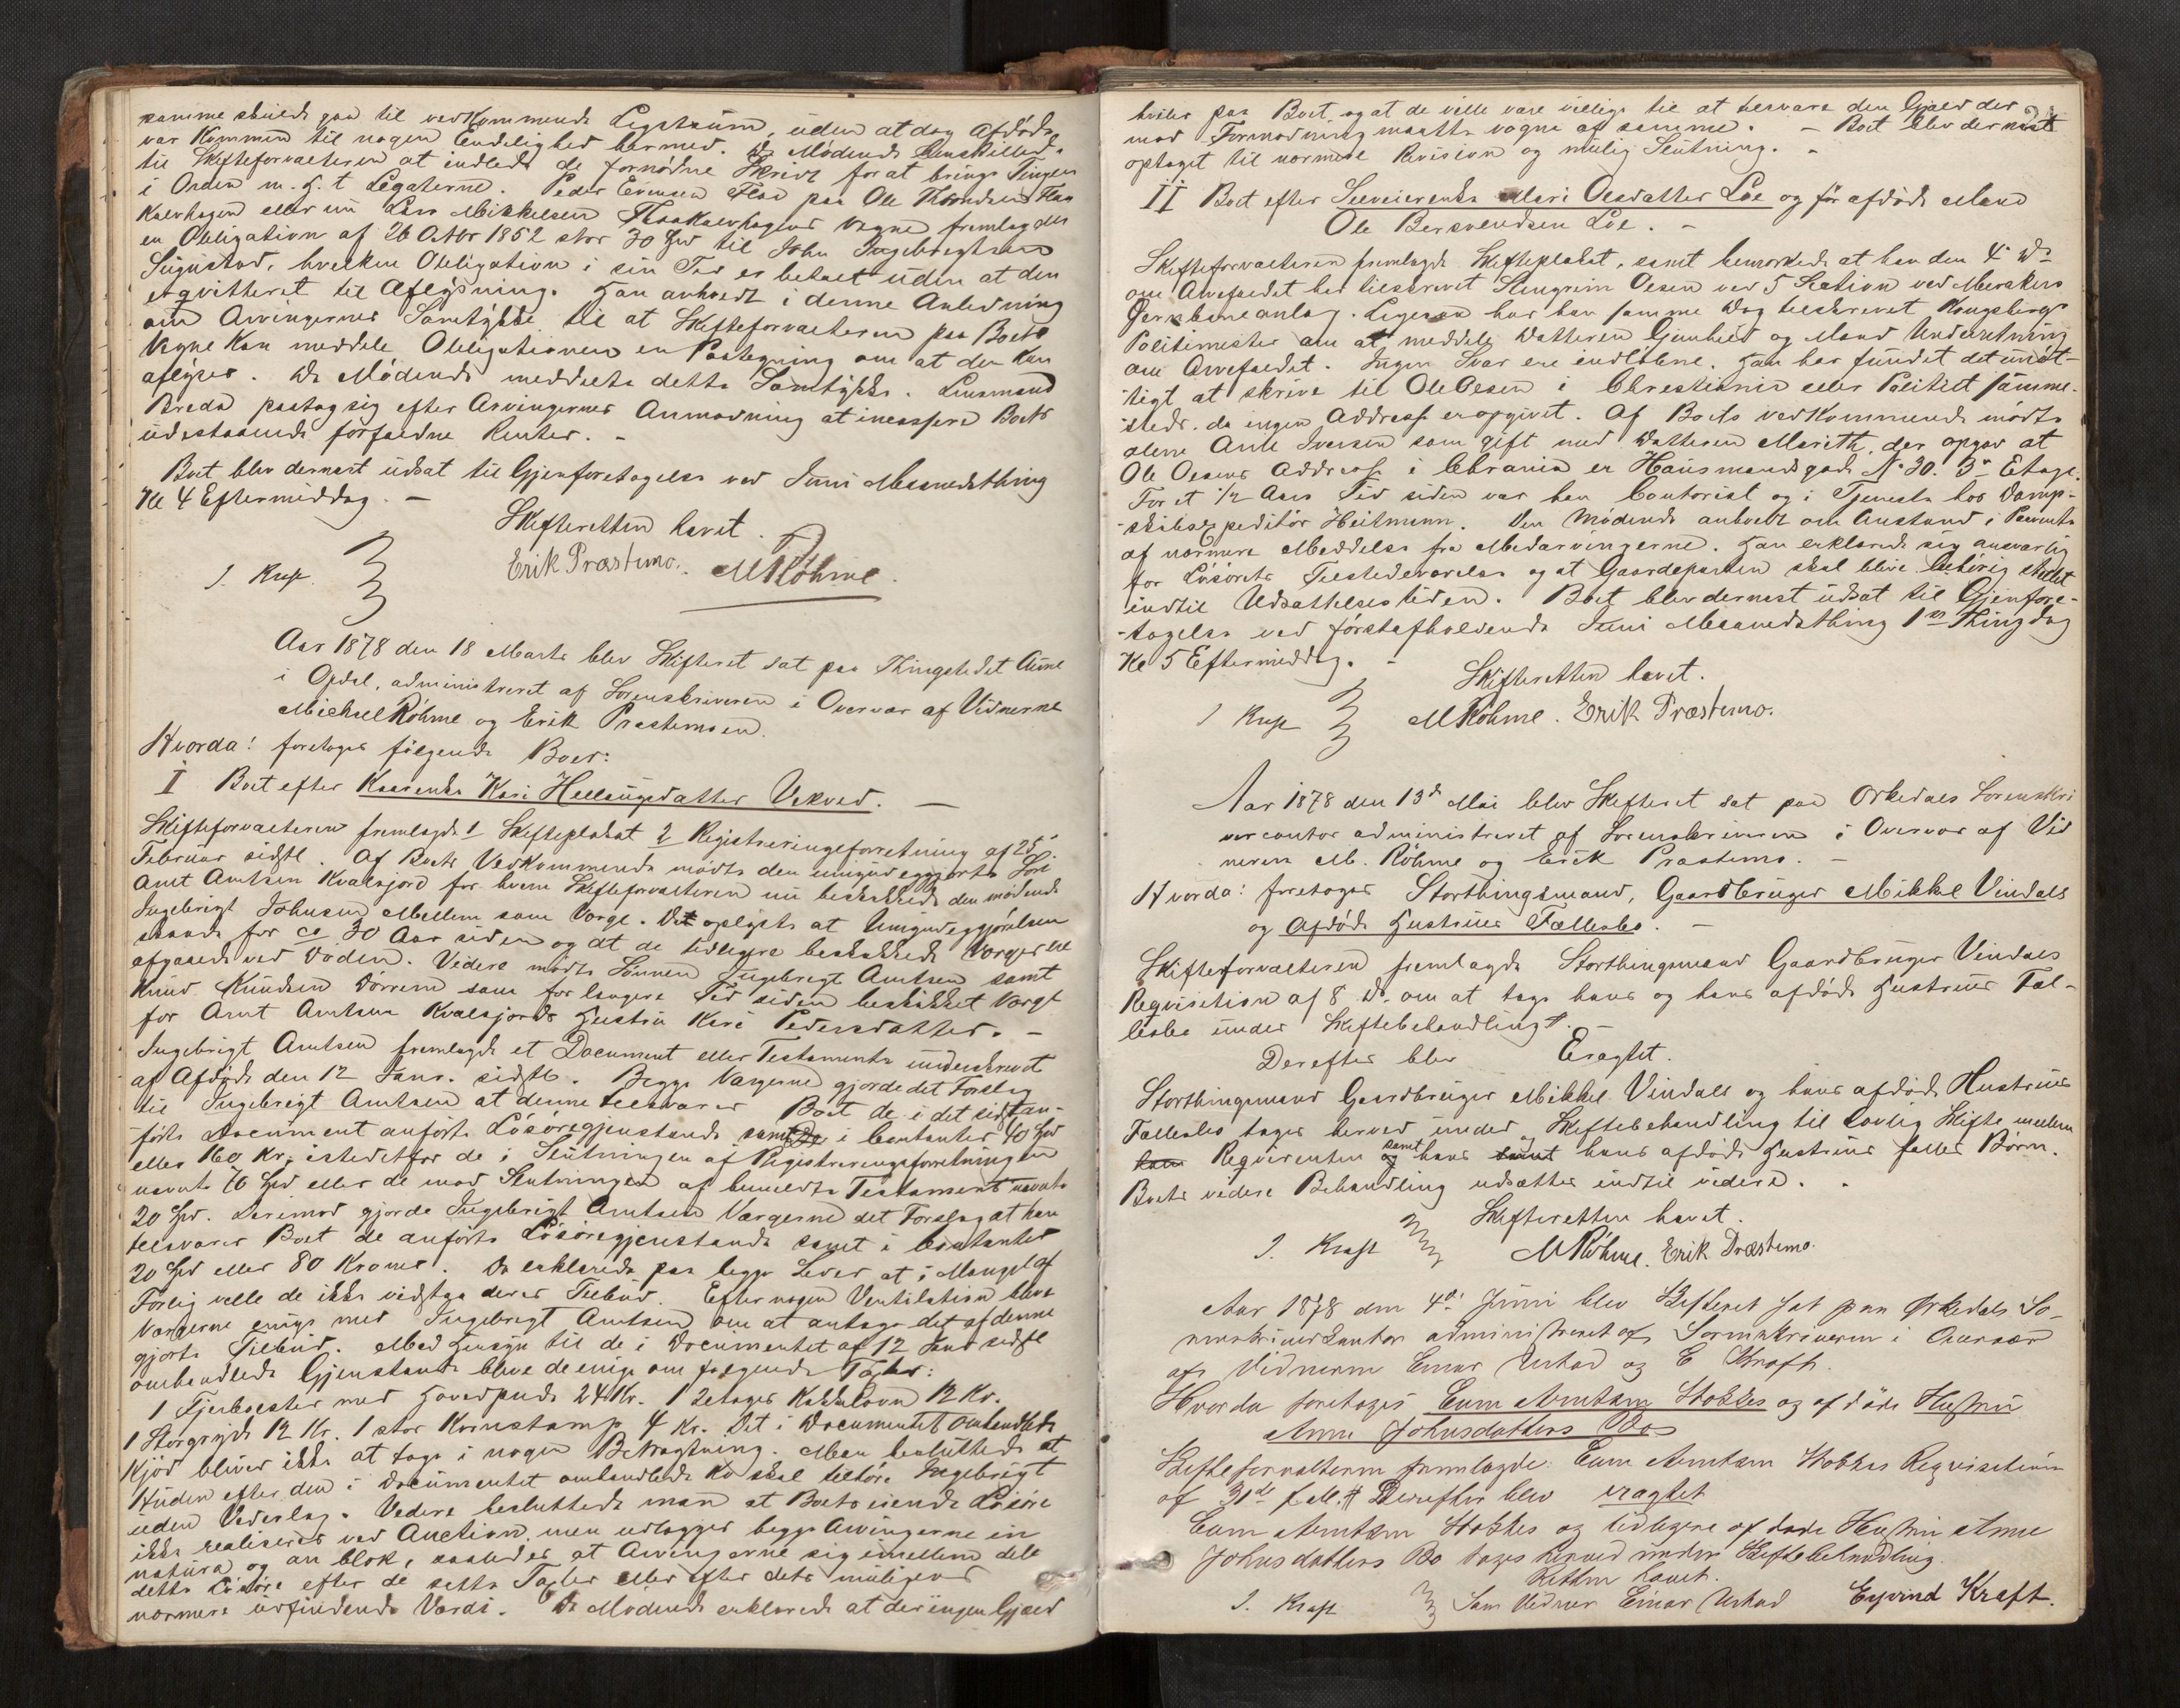 samme skulde gaa til vedkommende Legatum, uden at dog Afdøde
var kommen til nogen Endelighed hermed. De Mødende henstillede
til Skifteforvalteren at indlede de fornødne Skridt for at bringe Tingen
i Orden m. H. t Legaterne. Peder Evensen Floe paa Ole Thomsen
Kalvhagen eller nu Lars Mikkelsen Kalvhagens Vegne fremlagde
en Obligation af 26 Octbr 1852 stor 30 Spd til John Ingebrigtsen
Sugustad, hvilken Obligation i sin Tid er betalt uden at den
er qvitteret til Aflysning. Han anholdt i denne Anledning
om Arvingernes Samtykke til at Skifteforvalteren paa Boets
Vegne kan meddele Obligationen en Paategning om at den kan
aflyses. De Mødende meddelte dette Samtykke. Lensmand
Breda paatog sig efter Arvingernes Anmodning at incassere Boets
udestaaende forfaldne Renter. -
Boet blev dernæst udsat til Gjenforetagelse ved Juni Maanedsthing
Kl 4 Eftermiddag. -
Skifteretten hævet.
J. Kraft. Erik Præstemo. M Röhme.
Aar 1878 den 18 Marts blev Skifteret sat paa Thingstedet Aune
i Opdal, administreret af Sorenskriveren i Overvær af Vidnerne
Michael Röhme og Erik Præstemoen.
Hvorda! foretoges følgende Boer:
I Boet efter Kaarenke Kari Hellaugsdatter Vekved. -
Skifteforvalteren fremlagde 1 Skifteplakat 2 Registreringsforretning af 25
Februar sidstl. Af Boets Vedkommende mødte den umyndiggjorte Søn
Arnt Arntsen Kvalsjord for hvem Skifteforvalteren nu beskikkede den mødende
Ingebrigt Johnsen Mellem som Værge. Det oplystes at Umyndiggjørelsen
skeede for ca 30 Aar siden og at de tidligere beskikkede Værger ere
afgaaede ved Døden. Videre mødte Sønnen Ingebrigt Arntsen samt
Knud Knudsen Dørrem som for længere Tid siden beskikket Værge
for Arnt Arntsen Kvalsjords Hustru Kari Pedersdatter. -
Ingebrigt Arntsen fremlagde et Document eller Testamente underskrevet
af Afdøde den 12 Janr. sidstl. Begge Værgerne gjorde det Forslag
til Ingebrigt Arntsen at denne tilsvarer Boet de i det sidstan-
førte Document anførte Løsøregjenstande samt i Contanter 40 Spd
eller 160 Kr. istedetfor de i Slutningen af Registreringsforretningen
nævnte 70 Spd eller de mod Slutningen af bemeldte Testament nævnte
20 Spd. Derimod gjorde Ingebrigt Arntsen Værgerne det Forslag at han
tilsvarer Boet de anførte Løsøregjenstande samt i Contanter
20 Spd eller 80 Kroner. De erklærede paa begge Sider at i Mangel af
Forlig ville de ikke vedstaa deres Tilbud. Efter nogen Ventilation bleve
Værgerne enige med Ingebrigt Arntsen om at antage det af denne
gjorte Tilbud. Med Hensyn til de i Documentet af 12 Janr sidstl
omhandlede Gjenstande bleve de enige om følgende Taxter:
1 Fjerbolster med Hovedpude 24 Kr. 1 2etages Kakkelovn 12 Kr.
1 Storgryde 12 Kr. 1 stor Kornstamp 4 Kr. Det i Documentet omhandlede
Kjød bliver ikke at tage i nogen Betragtning. Man besluttede at
Huden efter den i Documentet omhandlede Ko skal tilhøre Ingebrigt
uden Vederlag. Videre besluttede man at Boets øvrige Løsøre
ikke realiseres ved Auction, men udlægges begge Arvingerne in
natura og en blok, saaledes at Arvingerne sig imellem dele
dette Løsøre efter de satte Taxter eller efter dets muligens
nærmere udfindende Værdi. De Mødende erklærede at der ingen Gjæld
hviler paa Boet og at de ville være villige til at tilsvare den Gjæld der
mod Formodning maatte vogne af samme. - Boet blev dernæst
optaget til nærmere Revision og mulig Slutning. -
II Boet efter Selveierenke Mari Olsdatter Løe og før afdøde Mand
Ole Bersvendsen Løe. -
Skifteforvalteren fremlagde Skifteplakat, samt bemærkede at han den 4 ds
om Arvefaldet har tilskrevet Stengrim Olsen ved 5 Section ved Merakers
Jernbaneanlæg. Ligesaa har han samme Dag tilskrevet Kongsbergs
Politimester om at meddele Datteren Gjunhild og Mand Underretning
om Arvefaldet. Ingen Svar ere indløbne. Han har fundet det unøt-
-tigt at skrive til Ole Olsen i Christiania eller Politiet samme-
steds, da ingen Addresse er opgivet. Af Boets vedkommende mødte
alene Arnt Iversen som gift med Datteren Marith, der opgav at
Ole Olsens Addresse i Chrania er Hausmandsgade No 30. 3die Etage.
For et 1/2 Aars Tid siden var han Contorist og i Tjeneste hos Damp-
-skibsexpeditør Heitmann. Den Mødende anholdt om Anstand i Paavente
af nærmere Meddelse fra Medarvingerne. Han erklærede sig ansvarlig
for Løsørets Tilstedeværelse og at Gaardeparten skal blive behørig stellet
indtil Udsættelsestiden. Boet blev dernæst udsat til Gjenfore-
-tagelse ved førstafholdende Juni Maanedsthing 1ste Thingdag
Kl 5 Eftermiddag. -
Skifteretten hævet.
J Kraft M Röhme. Erik Præstemo.
Aar 1878 den 13de Mai blev Skifteret sat paa Orkedals Sorenskri
vercontor administreret af Sorenskriveren i Overvær af Vid
nerne M. Röhme og Erik Præstemo. -
Hvorda: foretoges Storthingsmand, Gaardbruger Mikkel Vindals
og Afdøde Hustrues Fællesbo. -
Skifteforvalteren fremlagde Storthingsmand Gaardbruger Vindals
Reqvisition af 8 ds. om at tage hans og hans afdøde Hustrues Fæl-
lesbo under Skiftebehandling. -
Derefter blev Eragtet.
Storthingsmand Gaardbruger Mikkel Vindals og hans afdøde Hustrues
Fællesbo tages herved under Skiftebehandling til lovlig Skifte mellem
Reqvirenten samt hans og hans afdøde Hustrues fælles Børn.
Boets videre Behandling udsættes indtil videre. .
Skifteretten hævet.
J. Kraft M Röhme. Erik Præstemo.
Aar 1878 den 4de Juni blev Skifteret sat paa Ørkedals So-
renskriverkontor administreret af Sorenskriveren i Overvær
af Vidnerne Einar Urstad og E Kraft.
Hvorda foretoges Even Arntsen Stokkes og afdøde Hustru
Anne Johnsdatters Bo
Skifteforvalteren fremlagde: Even Arntsen Stokkes Reqvisition
af 31te f. M. Derefter blev eragtet
Even Arntsen Stokkes og tidligere afdøde Hustru Anne
Johnsdatters Bo tages herved under Skiftebehandling.
Retten hævet.
J. Kraft Som Vidner Einar Urstad Eyvind Kraft.